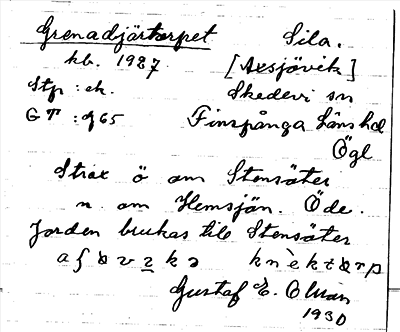 Grenadjärtorpet Sila.
kb. 1927 [Axsjövik]
Stp : ek. Skedevi sn
GT : g65 Finspånga Läns hd
Ögl
Strax ö om Stensäter
n. om Hemsjön. Öde.
Jorden brukas till Stensäter
Gustaf E. Olman
1930